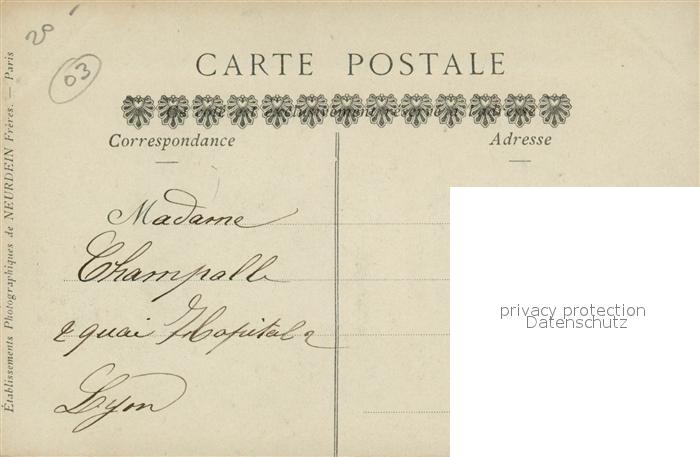 20
03
CARTE POSTALE
Correspondance
Adresse
Madame
Champalle
2 quai Hopital 2
Lyon
Établissements Photographiques de NEURDEIN Frères. — Paris
privacy protection
Datenschutz